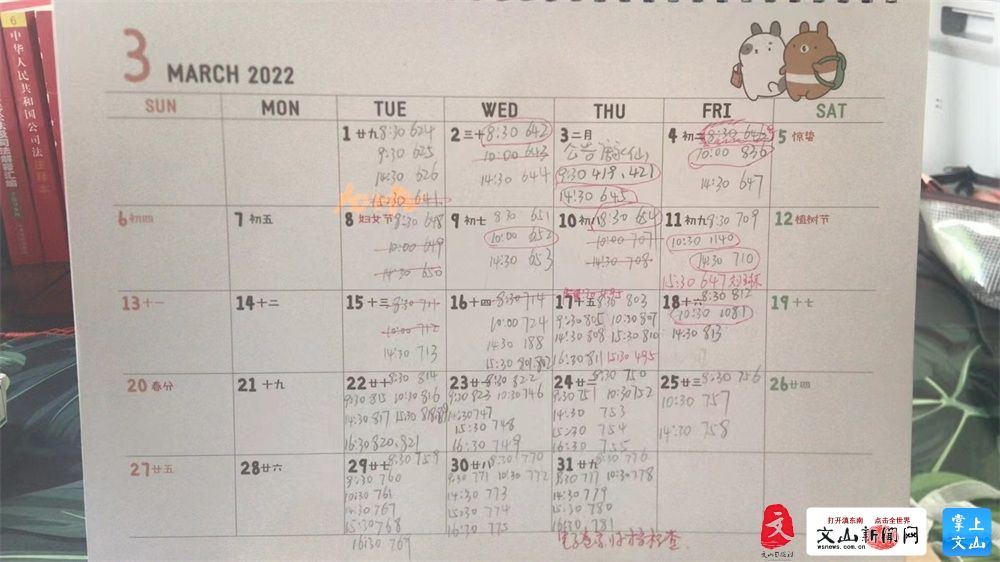 6
中华人民共和国公司法
注释本
司法解释汇编
3 MARCH 2022
SUN MON TUE WED THU FRI SAT
1 廿九 8:30 624
9:30 625
14:30 626
15:30 641
2 三十 8:30 642
10:00 643
14:30 644
3 二月
9:30 418、421
14:30 645
4 初二 8:30 646
10:00 836
14:30 647
5 惊蛰
6 初四
7 初五
8 妇女节 8:30 648
10:00 649
14:30 650
9 初七 8:30 651
10:00 652
14:30 653
10 初八 8:30 654
10:00 707
14:30 708
11 初九 8:30 709
10:30 1140
14:30 710
15:30 647
12 植树节
13 十一
14 十二
15 十三 8:30 711
10:00 712
14:30 713
16 十四 8:30 714
10:00 724
14:30 188
15:30 801.802
17 十五 8:30 803
9:30 805 10:30 807
14:30 808 15:30 810
16:30 811 15:30 495
18 十六 8:30 812
10:30 1081
14:30 813
19 十七
20 春分
21 十九
22 廿十 8:30 814
9:30 815 10:30 816
14:30 817 15:30
16:30 820.821
23 廿一 8:30 822
9:30 823 10:30 746
14:30 747
15:30 748
16:30 749
24 廿二 8:30 750
9:30 751 10:30 752
14:30 753
15:30 754
16:30 755
25 廿三 8:30 756
10:30 757
14:30 758
26 廿四
27 廿五
28 廿六
29 廿七 8:30 759
8:30 760
10:30 761
14:30 767
15:30 768
16:30 769
30 廿八 8:30 770
9:30 771 10:30 772
14:30 773
15:30 774
16:30 775
31 廿九 8:30 776
8:30 777 10:30 778
14:30 779
15:30 780
16:30 781
打开滇东南 点击全世界
文山新闻网
wsnews.com.cn
掌上
文山